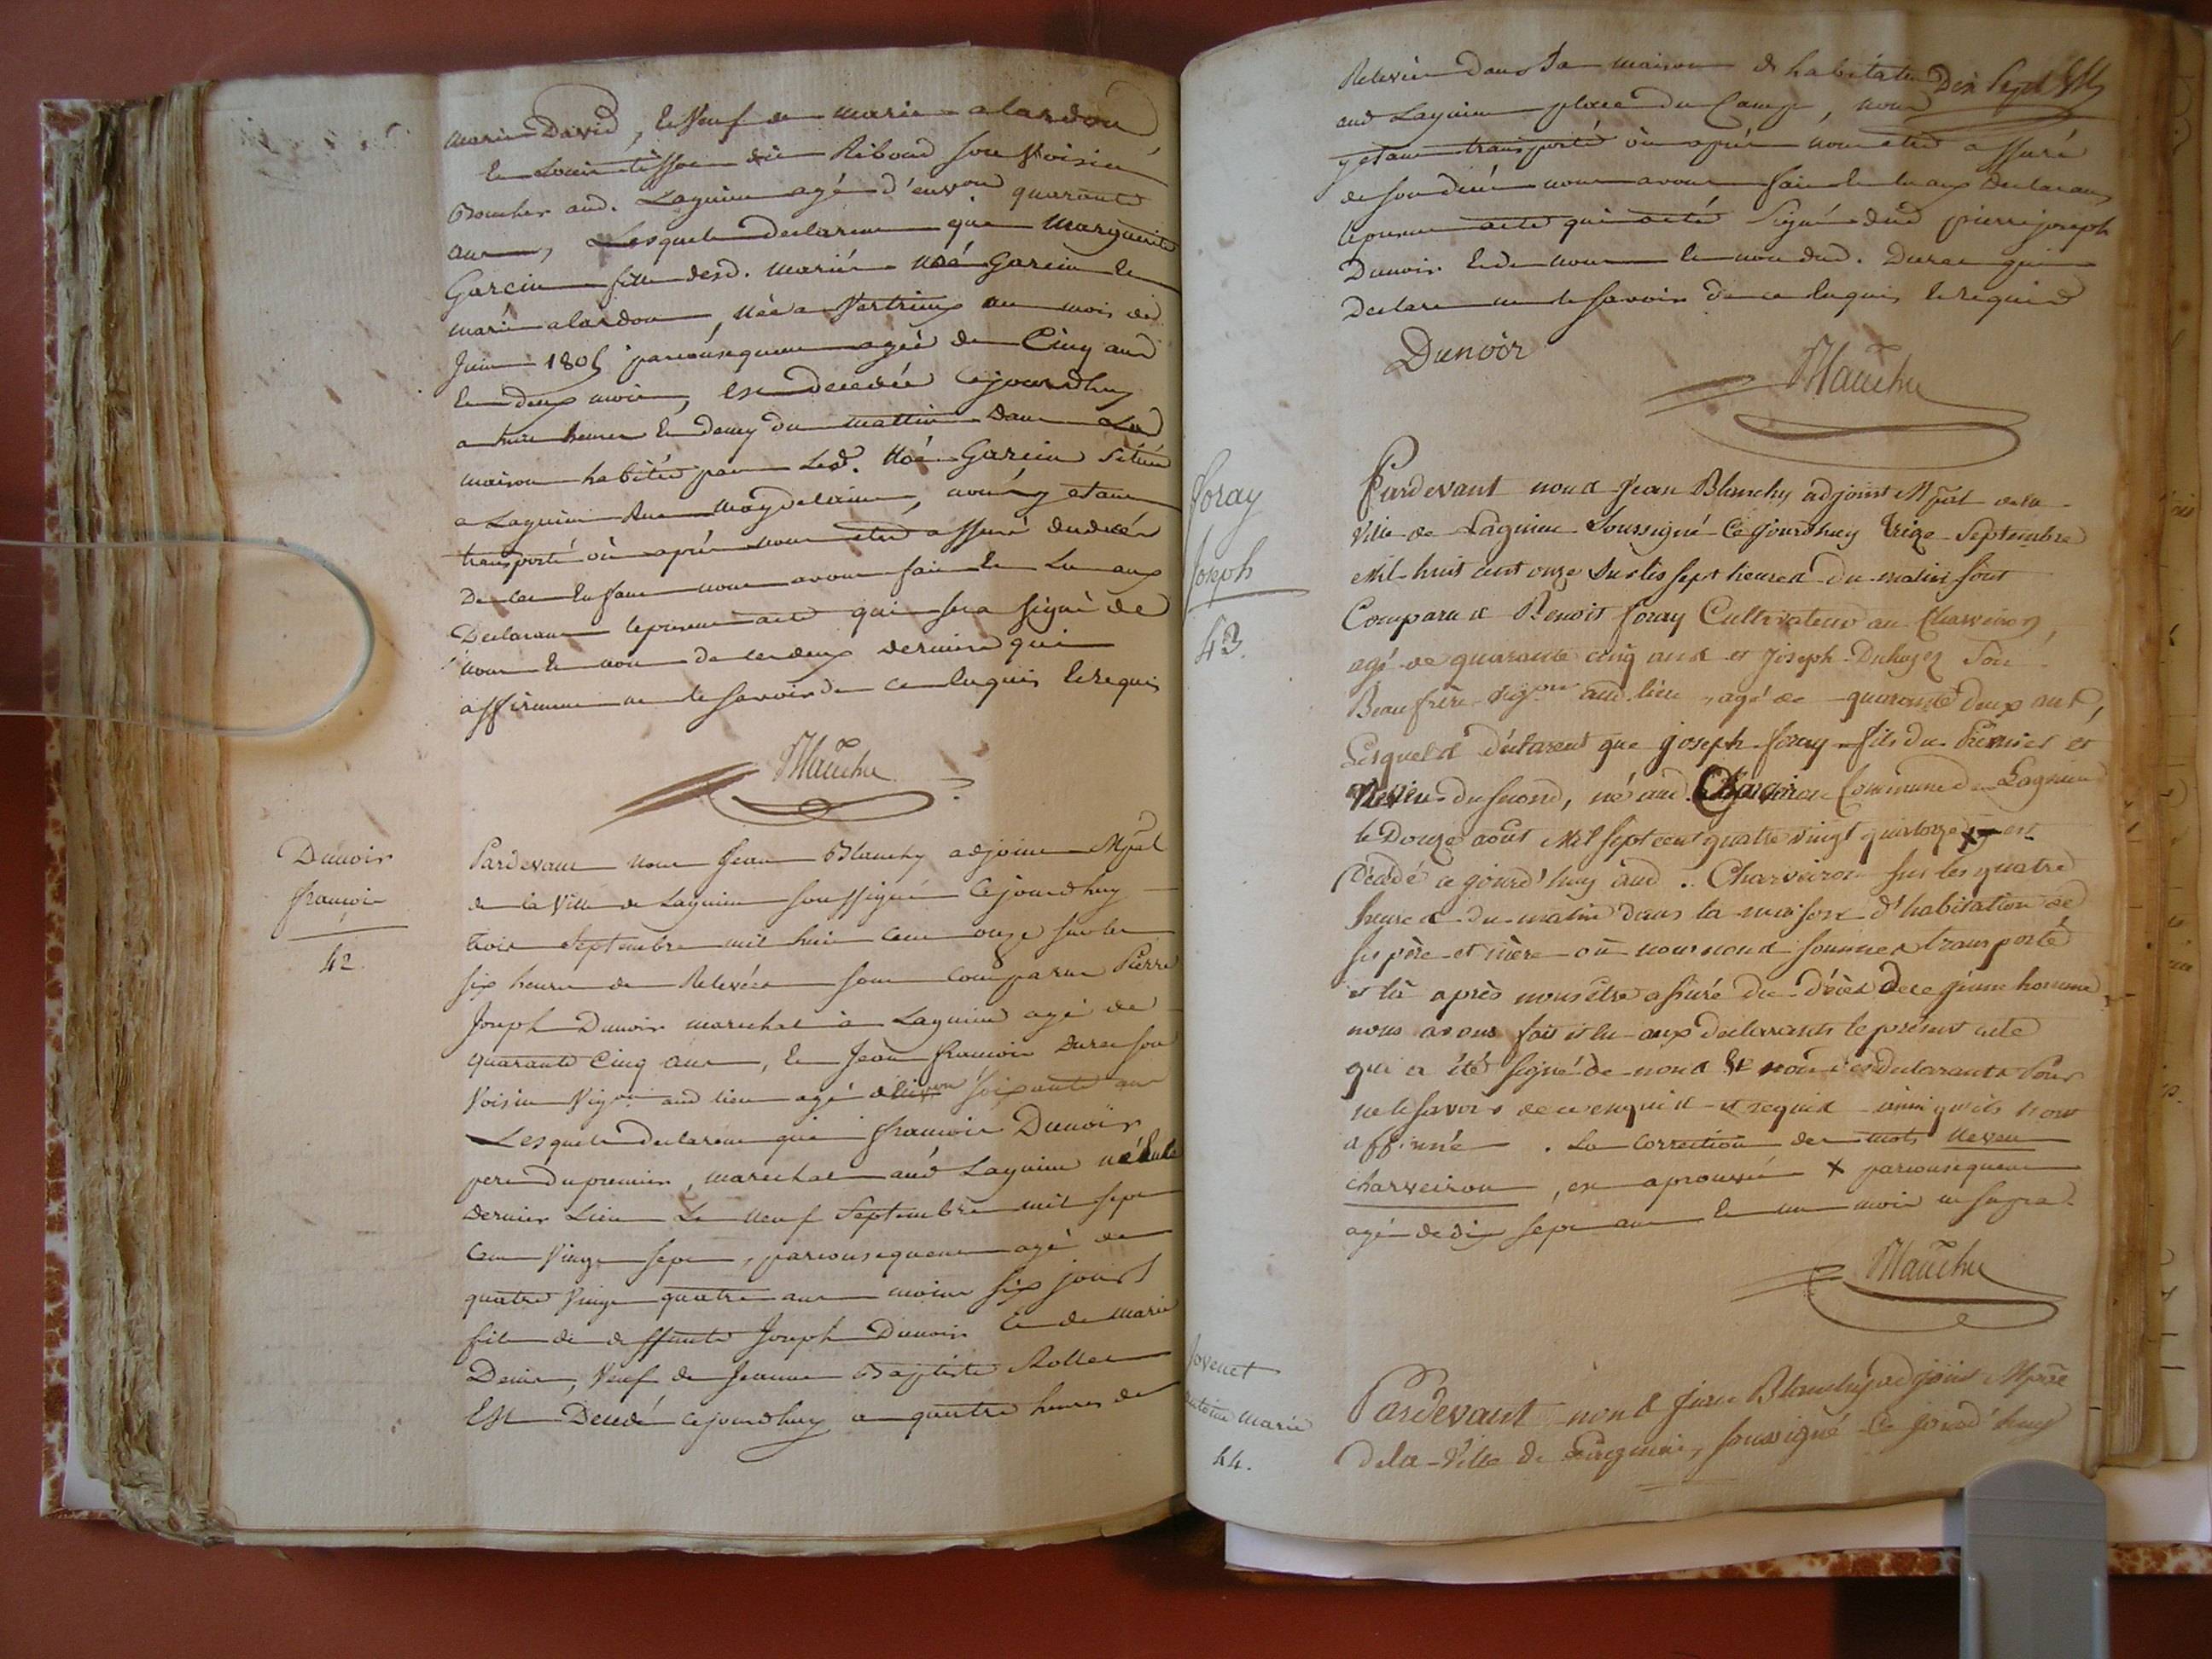 marie David, & Veuf de marie alardon
& Louis tissot dit Riboud son Voisin
Boucher aud. Lagnieu agé d'environ quarante
ans, Lesquels declarent que Marguerite
Garcin fille desd. mariés Noé Garcin &
marie alardon, Née a Vertrieu au mois de
Juin 1805 parconsequent agée de Cinq ans
& deux mois, est decedée Cejourdhuy
a huit heures & demy du mattin dans La
maison habitée par Led. Noé Garcin Située
a Lagnieu Rue Magdelaine, nous y étant
transporté où après nous être assuré dudecés
De cet Enfant nous avons fait & Lu aux
Declarants leprésent acte qui sera signé de
nous & non de ces deux derniers qui
affirment ne le savoir de ce Enquis & requis
Blanchy
Dunoir
françois
42.
Pardevant Nous Jean Blanchy adjoint Mpal
de la Ville de Lagnieu soussigné Cejourdhuy
trois Septembre mil huit cent onze sur les
six heures de Relevée sont comparus Pierre
Joseph Dunoir marechal à Lagnieu agé de
quarante Cinq ans, & Jean françois Duret son
Voisin Vigon aud lieu agé d'environ soixante ans
Lesquels declarent que françois Dunoir
pere du premier, marechal aud Lagnieu né aud
dernier Lieu Le Neuf Septembre mil sept
Cent Vingt sept, parconsequent agé de
quatre Vingt quatre ans moins six jours
fils de deffunts Joseph Dunoir & de Marie
Denis, Veuf de Jeanne Baptiste Rollet
Est Decedé cejourdhuy a quatre heures de
Relevée dans Sa maison d habitation Dix Sept
aud Lagnieu place du Camp, nous
y etant transporté où après nous être assuré
de son decés nous avons fait & lu aux declarants
leprésent acte qui a été Signé dud pierre joseph
Dunoir & de nous & non dud. Duret qui
Declare ne le savoir de ce Enquis & requis
Dunoir
Blanchy
foray
Joseph
43.
Pardevant nous Jean Blanchy adjoint Mpal de la
Ville de Lagnieu Soussigné Cejourdhuy treize Septembre
Mil huit cent onze Sur les sept heures du matin sont
Comparus Benoit foray Cultivateur au Charveiron,
agé de quarante cinq ans et Joseph Son
Beaufrère Vigon aud. lieu agé de quarante deux ans,
Lesquels déclarent que joseph foray fils du Premier et
Neveu du second, né aud. Charveiron Commune de Lagnieu
le Douze août Mil Sept cent quatre Vingt quatorze x est
Décédé ce jourd'huy aud. Charveiron sur les quatre
heures du matin dans la maison d'habitation de
ses père et mère où nous nous sommes transporté
et là après nous être assuré du décès de ce jeune homme
nous avons fait et lu aux declarants le présent acte
qui a été signé de nous & non des declarants Pour
ne le savoir de ce enquis et requis ainsi qu'ils l'ont
affirmé. La Correction des mots Neveu
charveiron, est aprouvée x parconsequent
agé de dix sept ans & un mois ut supra.
Blanchy
Jovenet
antoine Marie
44.
Pardevant nous Jean Blanchy adjoint Mpal
dela Ville de Lagnieu, soussigné Ce jourd'huy